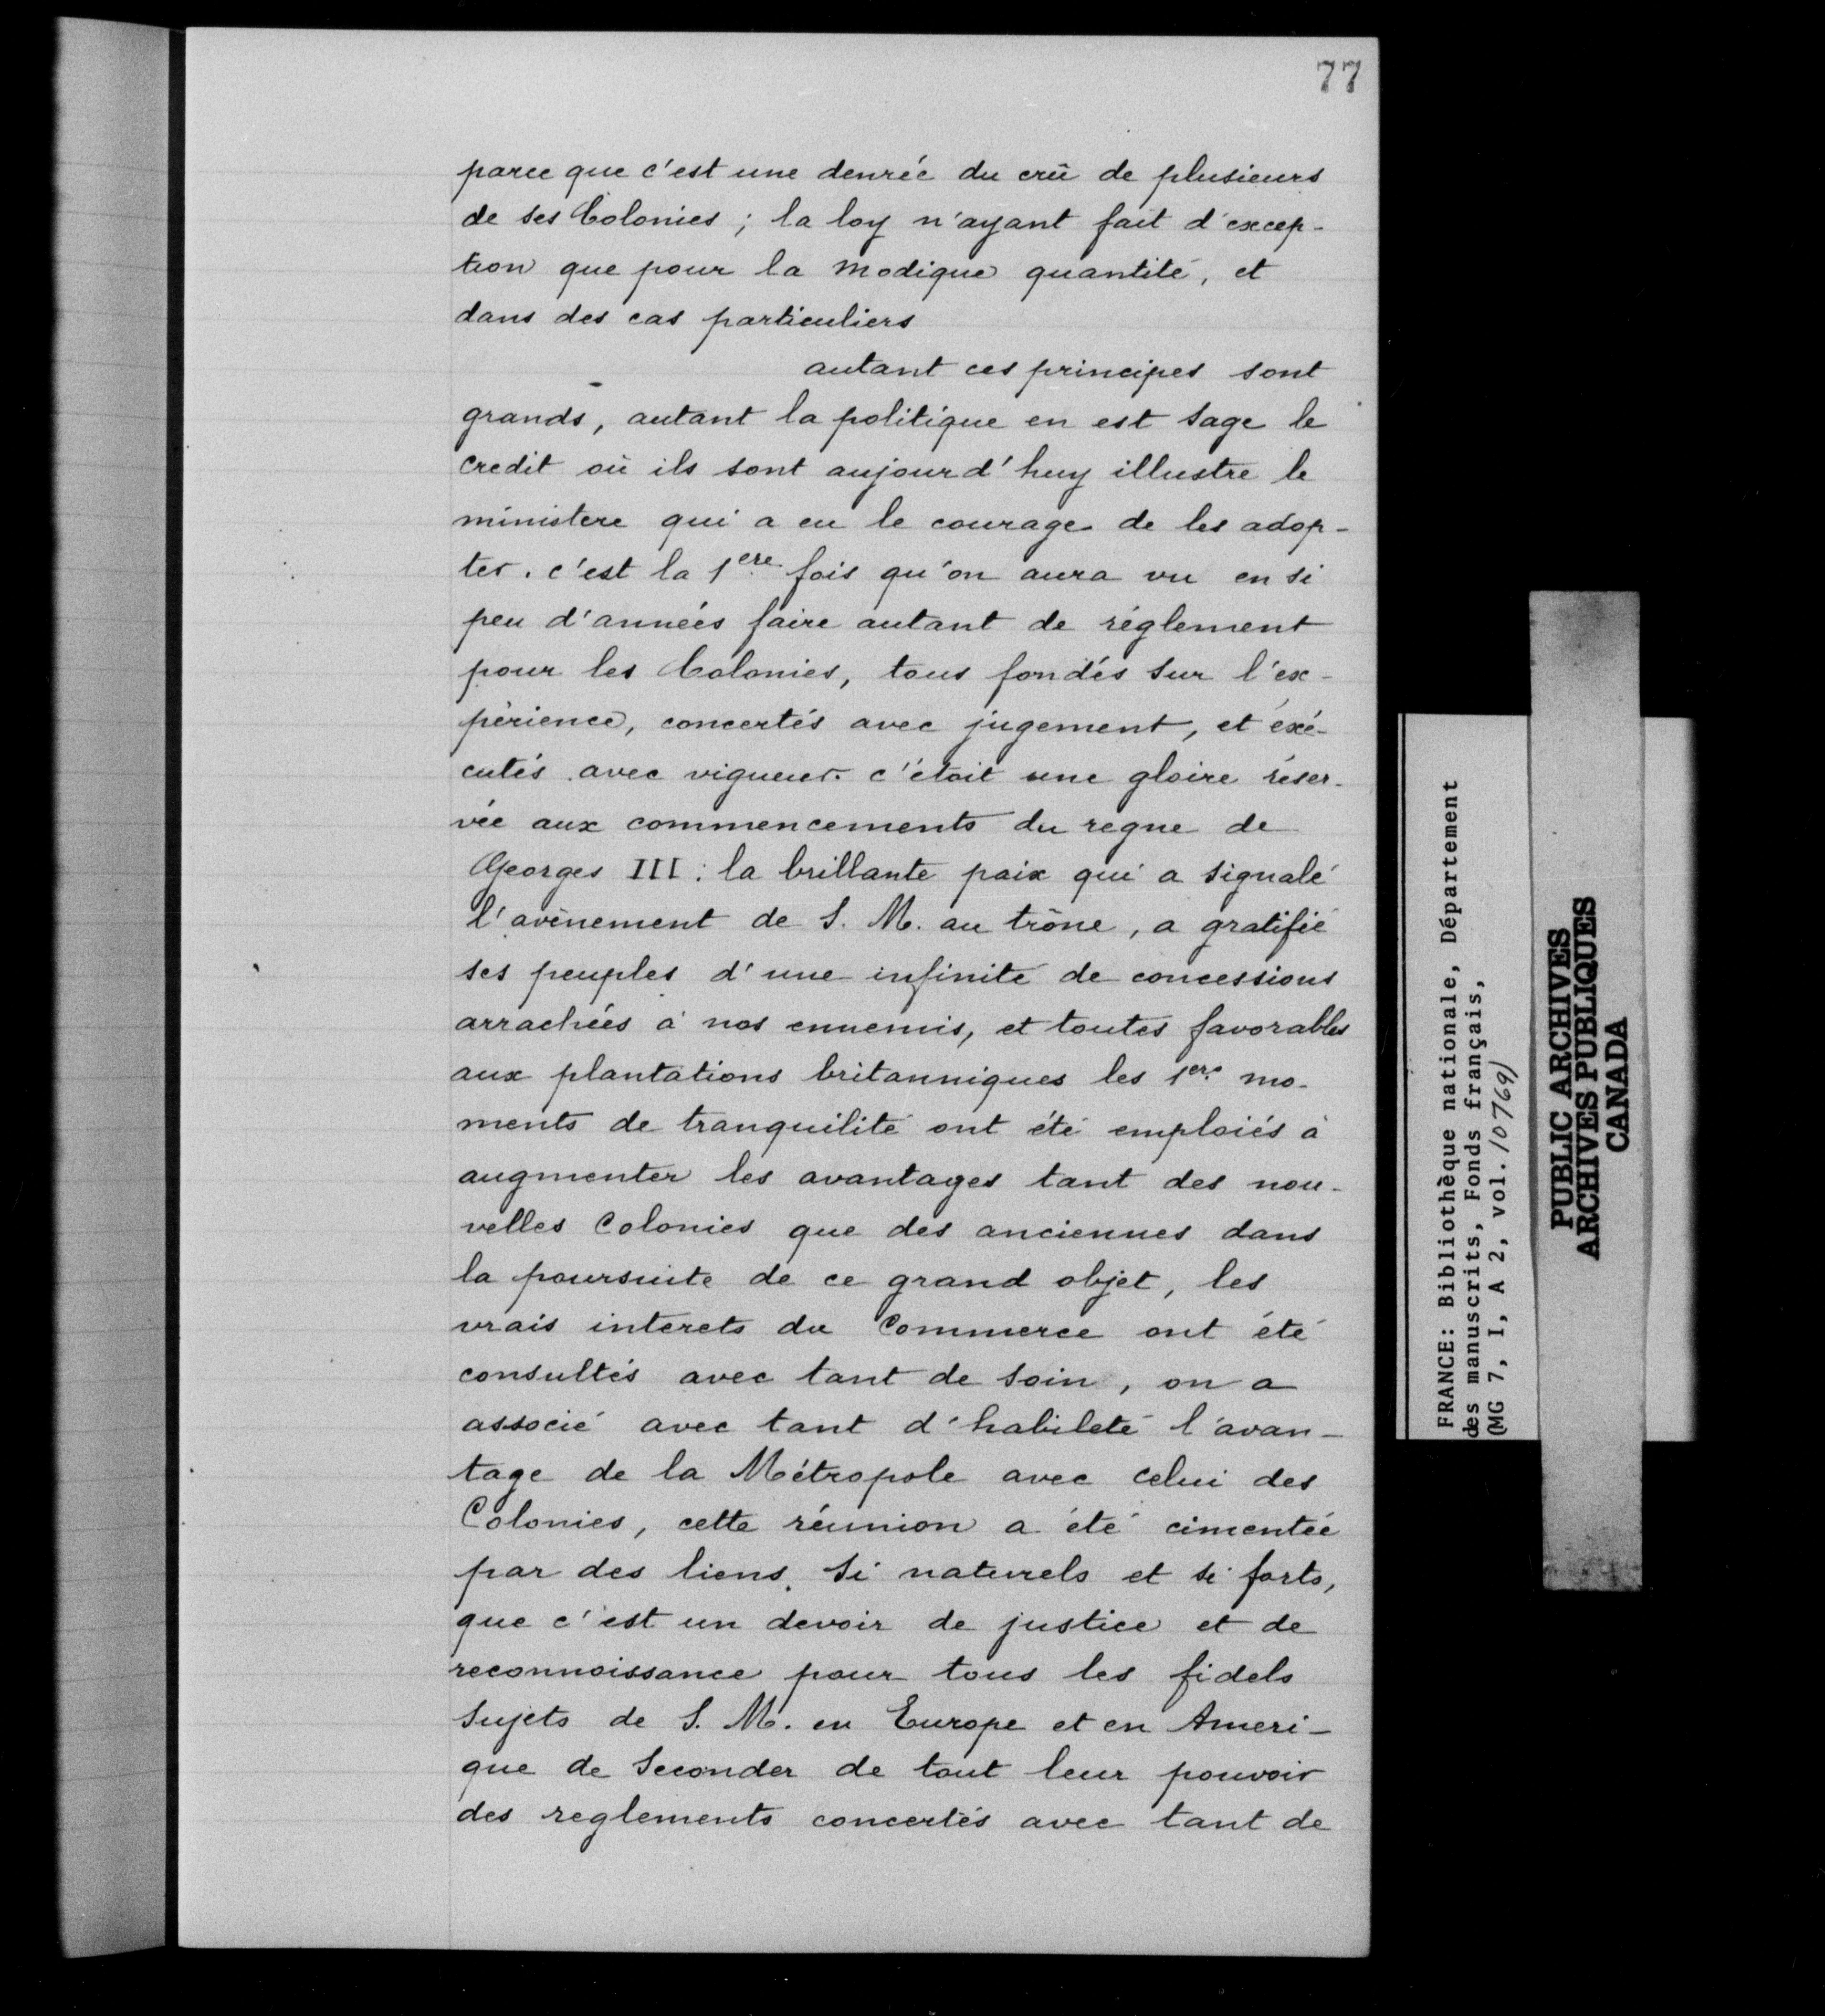 77
parce que c'est une denrée du crû de plusieurs
de ses Colonies ; la loy n'ayant fait d'excep-
tion que pour la modique quantité, et
dans des cas particuliers
autant ces principes sont
grands, autant la politique en est sage le
credit où ils sont aujourd'huy illustre le
ministere qui a eu le courage de les adop-
ter. c'est la 1ere fois qu'on aura vu en si
peu d'années faire autant de réglement
pour les Colonies, tous fondés sur l'ex-
périence, concertés avec jugement, et éxé-
cutés avec vigueur. c'étoit une gloire réser-
vée aux commencements du regne de
Georges III : la brillante paix qui a signalé
l'avènement de S. M. au trône, a gratifié
ses peuples d'une infinité de concessions
arrachées à nos ennemis, et toutes favorables
aux plantations britanniques les 1ers mo-
ments de tranquilité ont été emploiés à
augmenter les avantages tant des nou-
velles Colonies que des anciennes dans
la poursuite de ce grand objet, les
vrais interets du Commerce ont été
consultés avec tant de soin, on a
associé avec tant d'habileté l'avan-
tage de la Métropole avec celui des
Colonies, cette réunion a été cimentée
par des liens si naturels et si forts,
que c'est un devoir de justice et de
reconnoissance pour tous les fidels
sujets de S. M. en Europe et en Ameri-
que de seconder de tout leur pouvoir
des reglements concertés avec tant de
FRANCE: Bibliothèque nationale, Département
des manuscrits, Fonds français,
(MG 7, I, A 2, vol. 10769)
PUBLIC ARCHIVES
ARCHIVES PUBLIQUES
CANADA